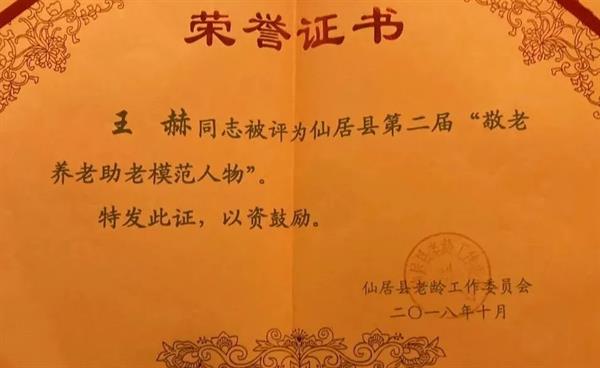 荣誉证书
王 赫同志被评为仙居县第二届“敬老
养老助老模范人物”。
特发此证，以资鼓励。
仙居县老龄工作委员会
二〇一八年十月